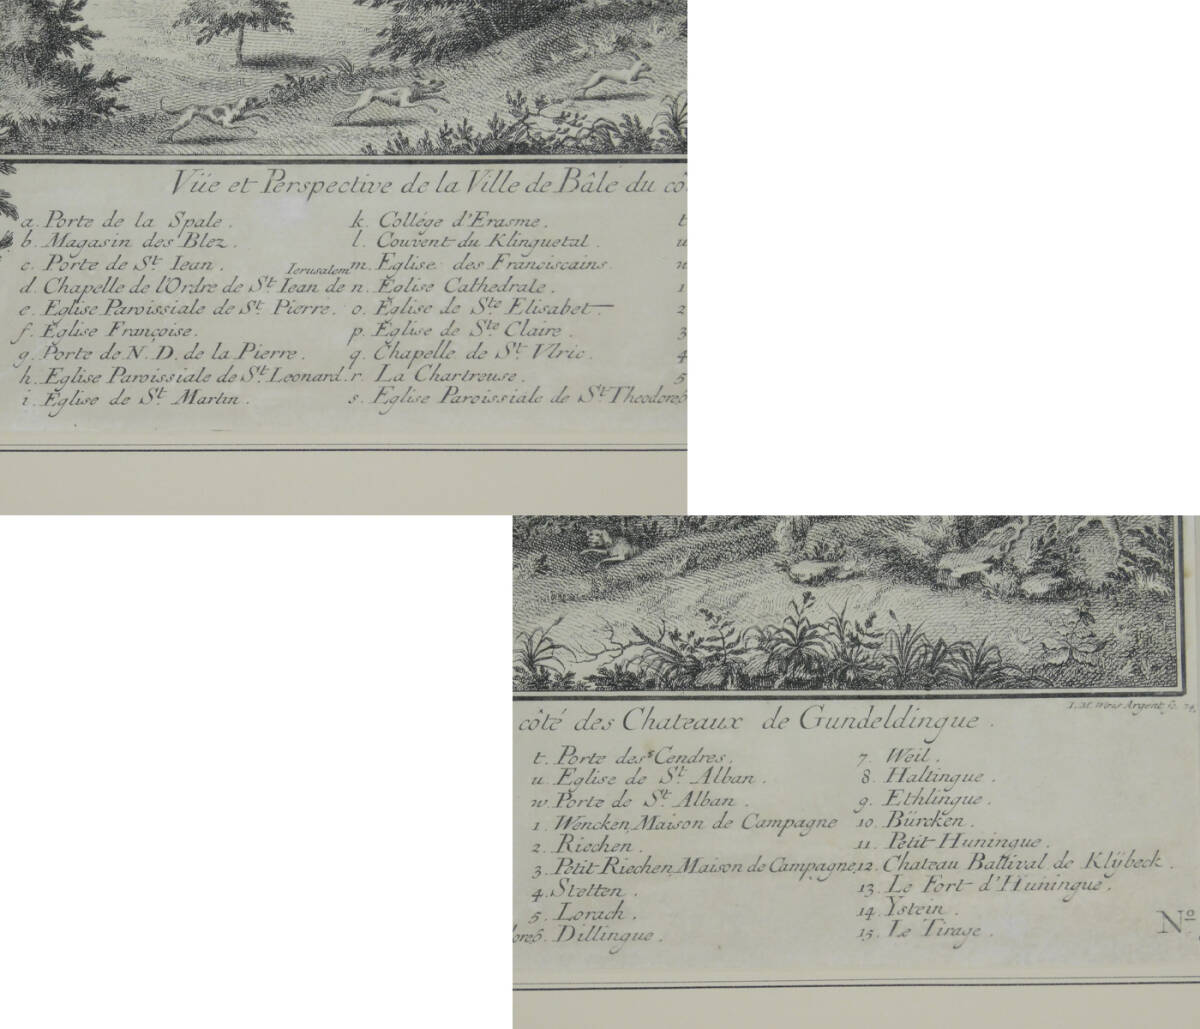 Vüe et Perspective de la Ville de Bâle du cô
a. Porte de la Spale.
b. Magasin des Blez.
c. Porte de St. Iean.
d. Chapelle de l'Ordre de St. Iean de Ierusalem
e. Eglise Paroissiale de St. Pierre.
f. Eglise Françoise.
g. Porte de N. D. de la Pierre.
h. Eglise Paroissiale de St. Leonard.
i. Eglise de St. Martin.
k. Collége d'Erasme.
l. Couvent du Klinguetal.
m. Eglise des Franciscains.
n. Eglise Cathedrale.
o. Eglise de Ste Elisabet
p. Eglise de Ste Claire.
q. Chapelle de St. Vlric.
r. La Chartreuse.
s. Eglise Paroissiale de St. Theodore
t
u
w
1
2
3
4
5
6
I. M. Weis Argent. sc.
côté des Chateaux de Gundeldingue.
t. Porte des Cendres.
u. Eglise de St. Alban.
w. Porte de St. Alban.
1. Wencken, Maison de Campagne
2. Riechen.
3. Petit Riechen, Maison de Campagne
4. Stetten.
5. Lorach.
ore 6. Dillingue.
7. Weil.
8. Haltingue.
9. Ethlingue.
10. Bürcken.
11. Petit Huningue.
12. Chateau Ballival de Klÿbeck.
13. Le Fort d'Huningue.
14. Ystein.
15. Le Tirage.
No